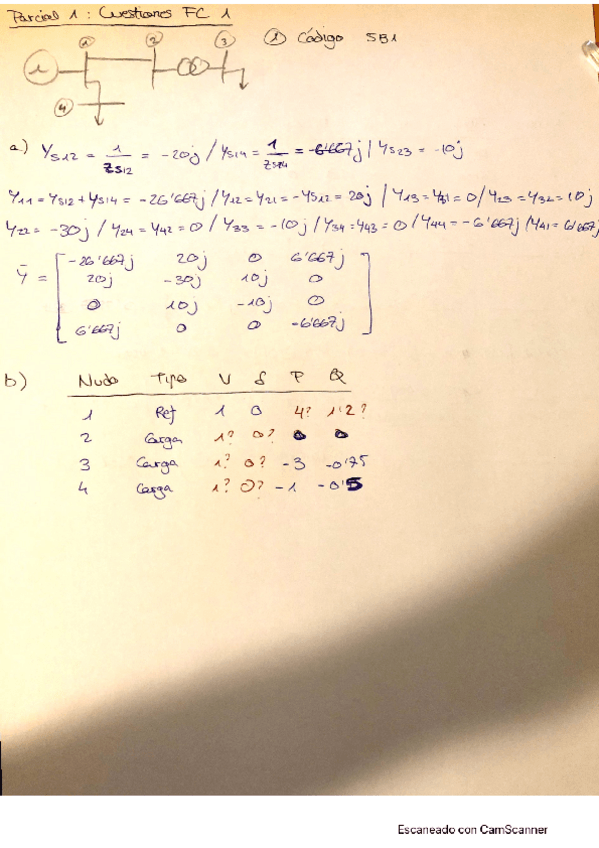 Parcial 1: Cuestiones FC 1
① Código SB1
1 2 3
1
4
a) Ys12 = 1/Zs12 = -20j / Ys14 = 1/Zs14 = -6'667j / Ys23 = -10j
Y11 = Ys12 + Ys14 = -26'667j / Y12 = Y21 = -Ys12 = 20j / Y13 = Y31 = 0 / Y23 = Y32 = 10j
Y22 = -30j / Y24 = Y42 = 0 / Y33 = -10j / Y34 = Y43 = 0 / Y44 = -6'667j / Y41 = 6'667j
Ȳ = [ -26'667j 20j 0 6'667j
20j -30j 10j 0
0 10j -10j 0
6'667j 0 0 -6'667j ]
b) Nudo Tipo V δ P Q
1 Ref 1 0 4? 1'2?
2 Carga 1? 0? 0 0
3 Carga 1? 0? -3 -0'75
4 Carga 1? 0? -1 -0'5
Escaneado con CamScanner